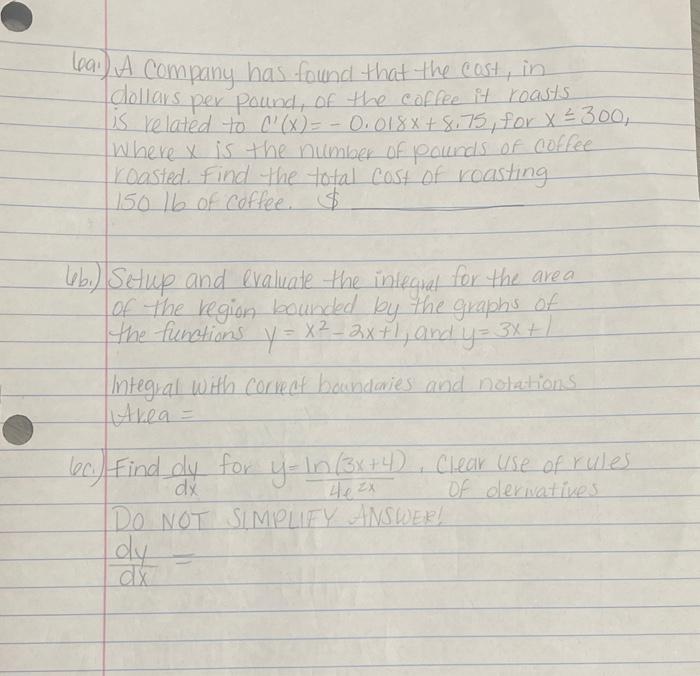 6a.) A company has found that the cost, in
dollars per pound, of the coffee it roasts
is related to C'(x) = - 0.018x + 8.75, for x ≤ 300,
where x is the number of pounds of coffee
roasted. Find the total cost of roasting
150 lb of coffee. $ ____________
6b.) Setup and evaluate the integral for the area
of the region bounded by the graphs of
the functions y = x² - 2x + 1, and y = 3x + 1
Integral with correct boundaries and notations
Area =
6c.) Find dy/dx for y = ln(3x+4)/4e^2x. Clear use of rules
of derivatives
DO NOT SIMPLIFY ANSWER!
dy/dx =